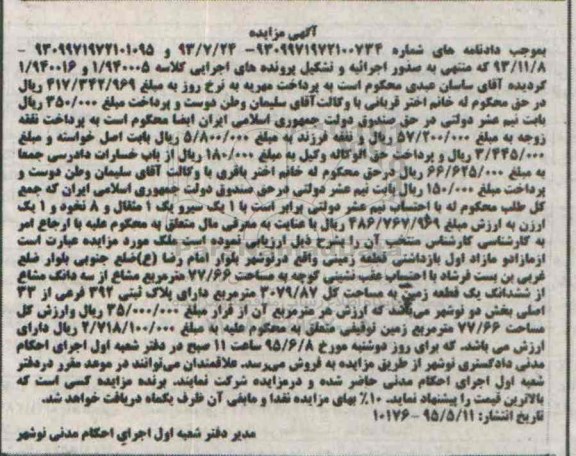 آگهی مزایده
بموجب دادنامه های شماره ۹۳۰۹۹۷۱۹۷۲۱۰۰۷۳۴- ۹۳/۷/۲۴ و ۹۳۰۹۹۷۱۹۷۲۱۰۱۰۹۵ -
۹۳/۱۱/۸ که منتهی به صدور اجرائیه و تشکیل پرونده های اجرایی کلاسه ۱/۹۴۰۰۰۵ و ۱/۹۴۰۰۱۶
گردیده آقای ساسان عبدی محکوم است به پرداخت مهریه به نرخ روز به مبلغ ۴۱۷/۳۴۲/۹۶۹ ریال
در حق محکوم له خانم اختر قربانی با وکالت آقای سلیمان وطن دوست و پرداخت مبلغ ۳۵۰/۰۰۰ ریال
بابت نیم عشر دولتی در حق صندوق دولت جمهوری اسلامی ایران ایضا محکوم است به پرداخت نفقه
زوجه به مبلغ ۵۷/۲۰۰/۰۰۰ ریال و نفقه فرزند به مبلغ ۵/۸۰۰/۰۰۰ ریال بابت اصل خواسته و مبلغ
۳/۴۴۵/۰۰۰ ریال و پرداخت حق الوکاله وکیل به مبلغ ۱۸۰/۰۰۰ ریال از باب خسارات دادرسی جمعا
به مبلغ ۶۶/۶۲۵/۰۰۰ ریال درحق محکوم له خانم اختر باقری با وکالت آقای سلیمان وطن دوست و
پرداخت مبلغ ۱۵۰/۰۰۰ ریال بابت نیم عشر دولتی درحق صندوق دولت جمهوری اسلامی ایران که جمع
کل طلب محکوم له با احتساب نیم عشر دولتی برابر است با ۱ یک سیرو یک ۱ مثقال و ۸ نخود و ۱ یک
ارزن به ارزش مبلغ ۴۸۶/۷۶۷/۹۶۹ ریال با عنایت به معرفی مال متعلق به محکوم علیه با ارجاع امر
به کارشناسی کارشناس منتخب آن را بشرح ذیل ارزیابی نموده است ملک مورد مزایده عبارت است
ازمازادو مازاد اول بازداشتی قطعه زمینی واقع درنوشهر بلوار امام رضا (ع)ضلع جنوبی بلوار ضلع
غربی بن بست فرشاد با احتساب عقب نشینی کوچه به مساحت ۷۷/۶۶ مترمربع مشاع از سه دانگ مشاع
از ششدانگ یک قطعه زمین به مساحت کل ۳۰۷۹/۸۷ مترمربع دارای پلاک ثبتی ۳۹۲ فرعی از ۳۳
اصلی بخش دو نوشهر می‌باشد که ارزش هر مترمربع آن از قرار مبلغ ۳۵/۰۰۰/۰۰۰ ریال وارزش کل
مساحت ۷۷/۶۶ مترمربع زمین توقیفی متعلق به محکوم علیه به مبلغ ۲/۷۱۸/۱۰۰/۰۰۰ ریال دارای
ارزش می باشد. که برای روز دوشنبه مورخ ۹۵/۶/۸ ساعت ۱۱ صبح در دفتر شعبه اول اجرای احکام
مدنی دادگستری نوشهر از طریق مزایده به فروش می‌رسد. علاقمندان می‌توانند در موعد مقرر دردفتر
شعبه اول اجرای احکام مدنی حاضر شده و درمزایده شرکت نمایند. برنده مزایده کسی است که
بالاترین قیمت را پیشنهاد نماید. ۱۰٪ بهای مزایده نقدا و مابقی آن ظرف یکماه دریافت خواهد شد.
تاریخ انتشار: ۹۵/۵/۱۱ -۱۰۱۷۶
مدیر دفتر شعبه اول اجرای احکام مدنی نوشهر